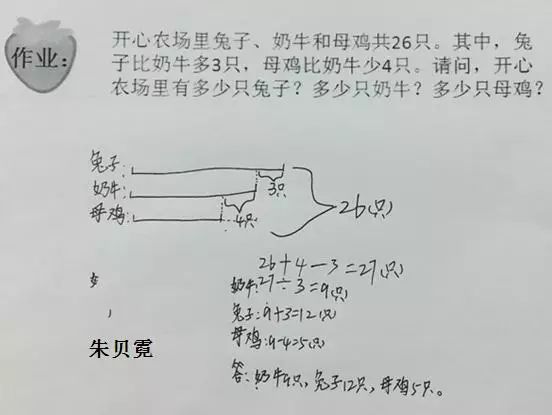 作业：
开心农场里兔子、奶牛和母鸡共26只。其中，兔
子比奶牛多3只，母鸡比奶牛少4只。请问，开心
农场里有多少只兔子？多少只奶牛？多少只母鸡？
兔子：
3只
奶牛：
26(只)
母鸡：
4只
26+4-3=27(只)
奶牛：27÷3=9(只)
兔子：9+3=12(只)
母鸡：9-4=5(只)
朱贝霓
答：奶牛9只，兔子12只，母鸡5只。